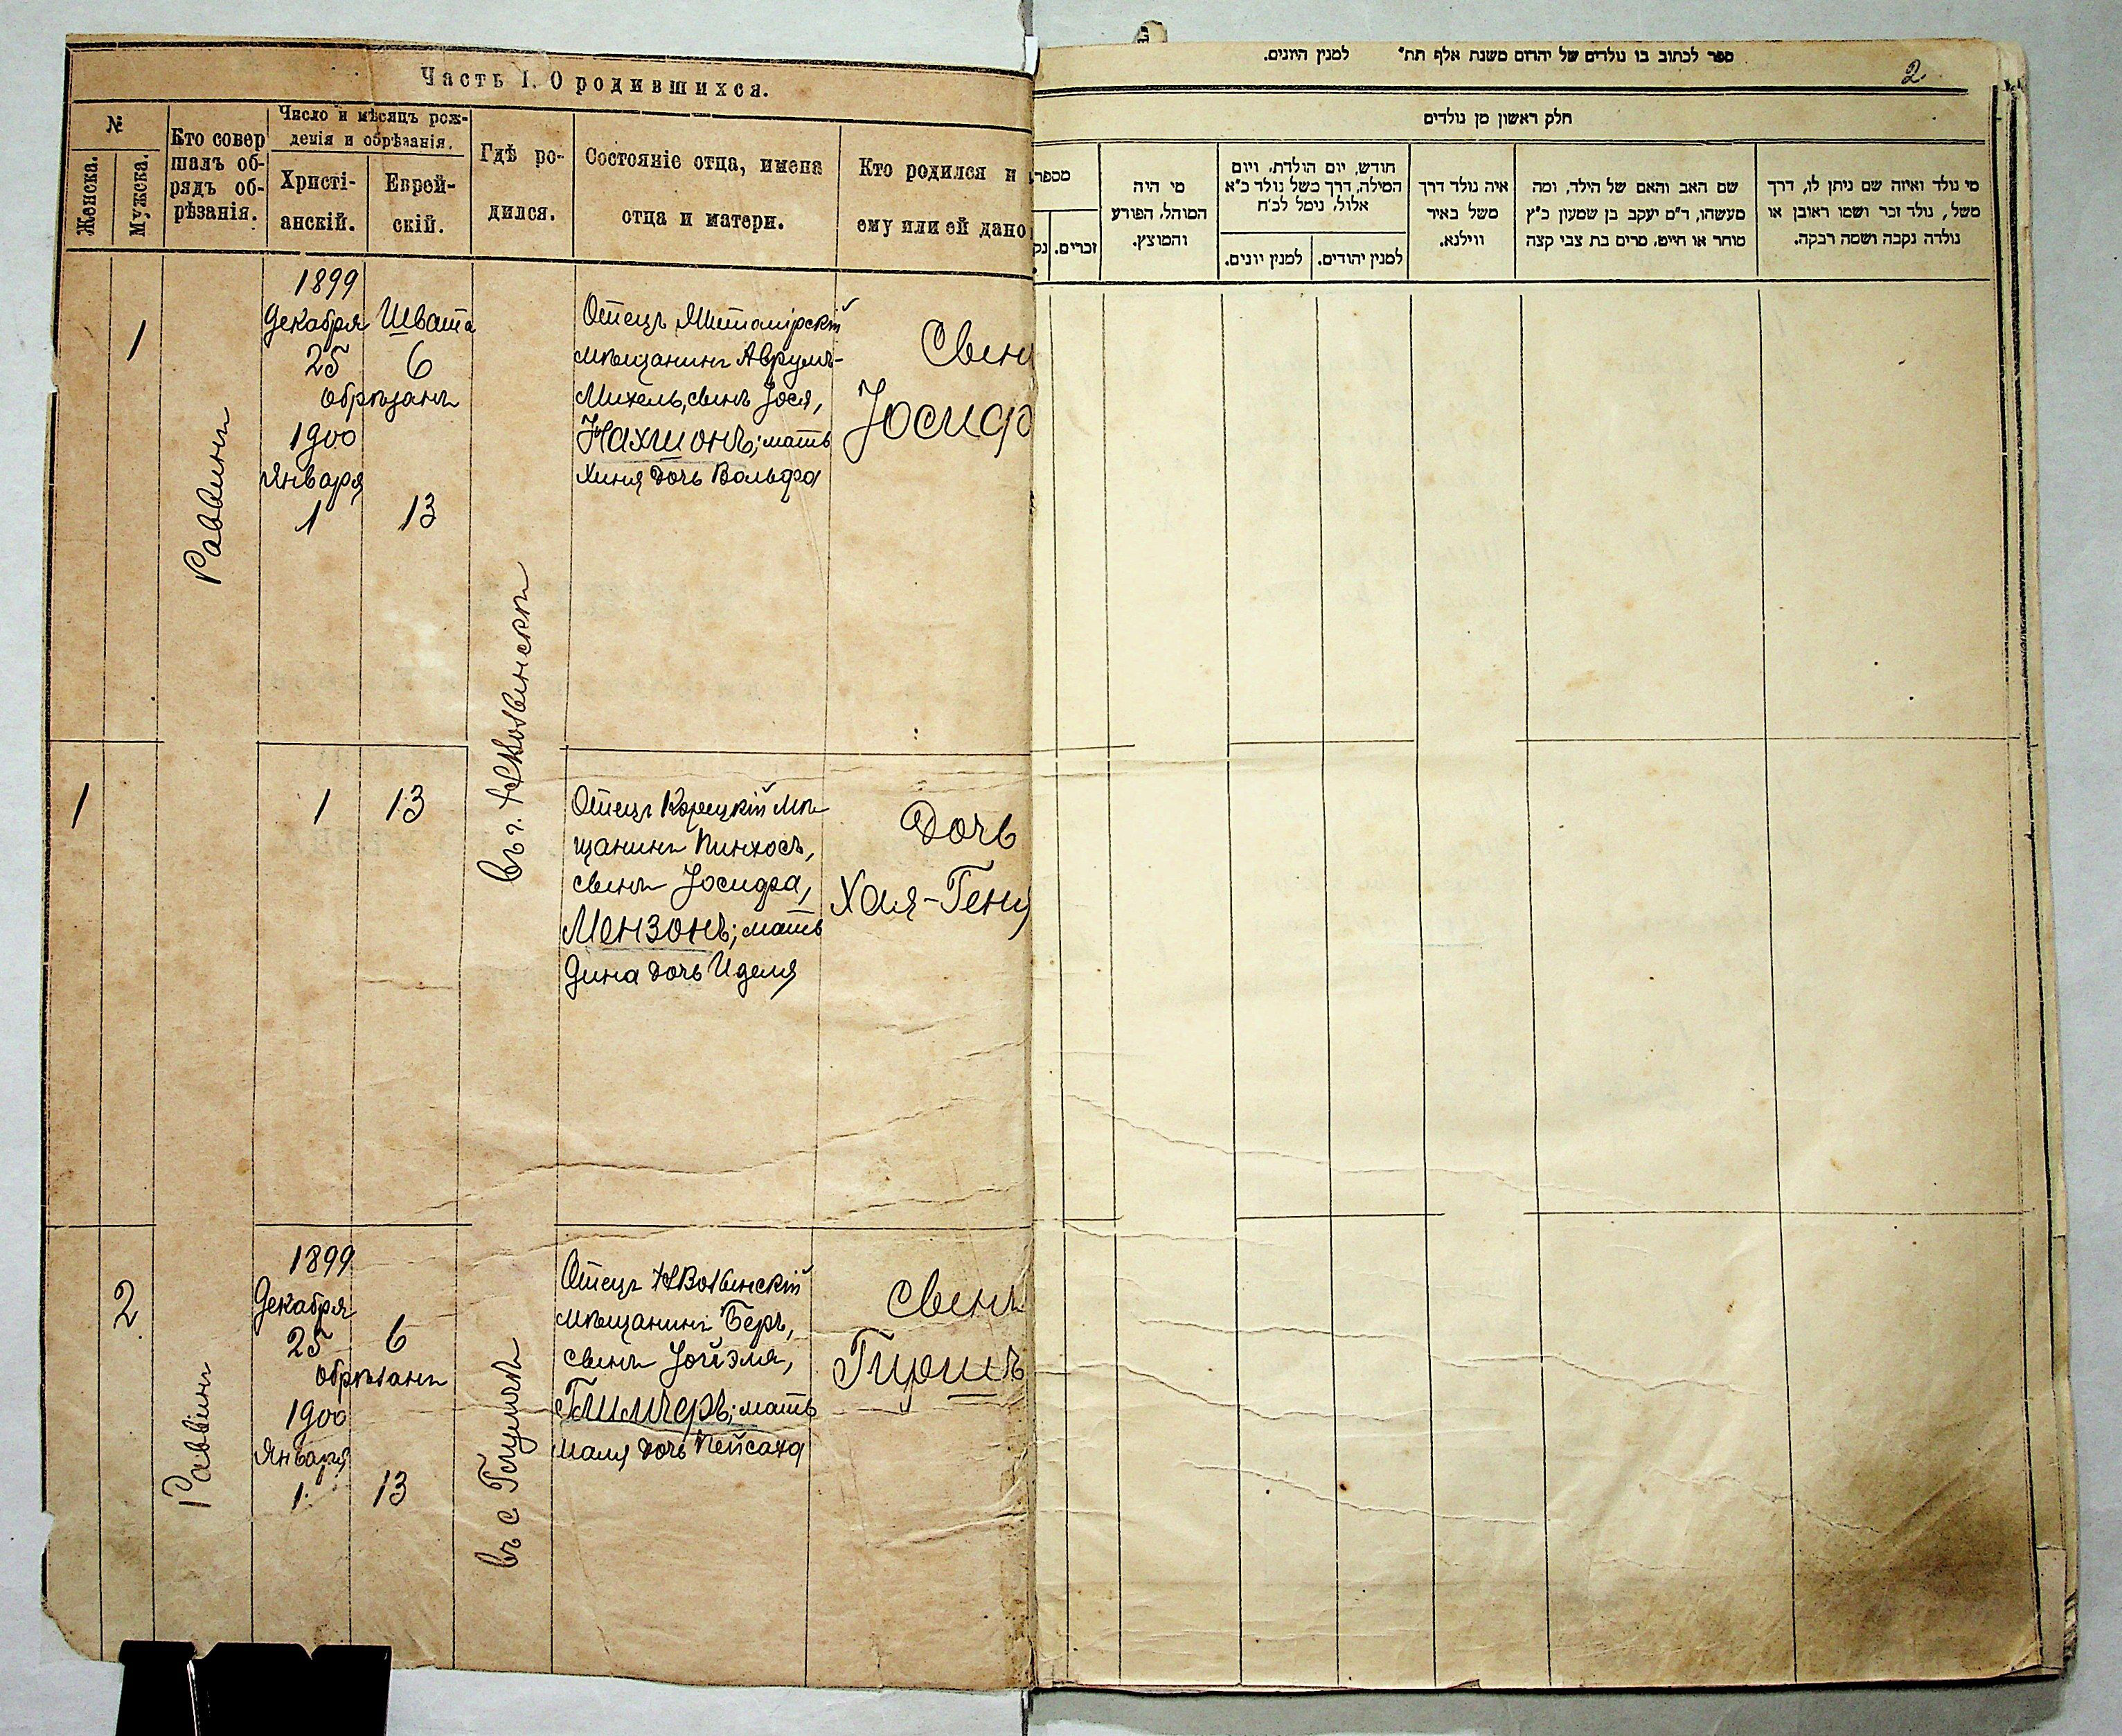 Часть I. О родившихся.
№
Женска.
Мужска.
Кто совер
шалъ об-
рядъ об-
рѣзанія.
Число и мѣсяцъ рож-
денія и обрѣзанія.
Христі-
анскій.
Еврей-
скій.
Гдѣ ро-
дился.
Состояніе отца, имена
отца и матери.
Кто родился и
ему или ей дано
1
Раввинъ
1899
Декабря
25
обрѣзанъ
1900
Января
1
Швата
6
13
Отецъ Житомірскій
мѣщанинъ Аврумъ-
Михель, сынъ Іося,
Нахшонъ; мать
Хиня дочь Вольфа
Сын
Іосиф
1
1
13
Отецъ Корецкій мѣ
щанинъ Пинхосъ,
сынъ Іосифа,
Мензонъ; мать
Дина дочь Иделя
Дочь
Хая-Геня
2
Раввинъ
1899
Декабря
25
обрѣзанъ
1900
Января
1
6
13
въ с
Отецъ
мѣщанинъ Беръ,
сынъ
мать
Маля дочь Пейсаха
сынъ
Гиршъ
ספר לכתוב בו נולדים של יהדום משנת אלף תת" למנין היונים.
2
חלק ראשון מן נולדים
מי נולד ואיזה שם ניתן לו, דרך
משל, נולד זכר ושמו ראובן או
נולדה נקבה ושמה רבקה.
שם האב והאם של הילד, ומה
מעשהו, ד"מ יעקב בן שמעון כ"ץ
סוחר או חייט, מרים בת צבי קצה
איה נולד דרך
משל באיר
ווילנא.
חודש, יום הולדת, ויום
המילה, דרך משל נולד כ"א
אלול, נימל לכ"ח
למנין יהודים.
למנין יונים.
מי היה
המוהל, הפורע
והמוצץ.
מספר
זכרים.
נק